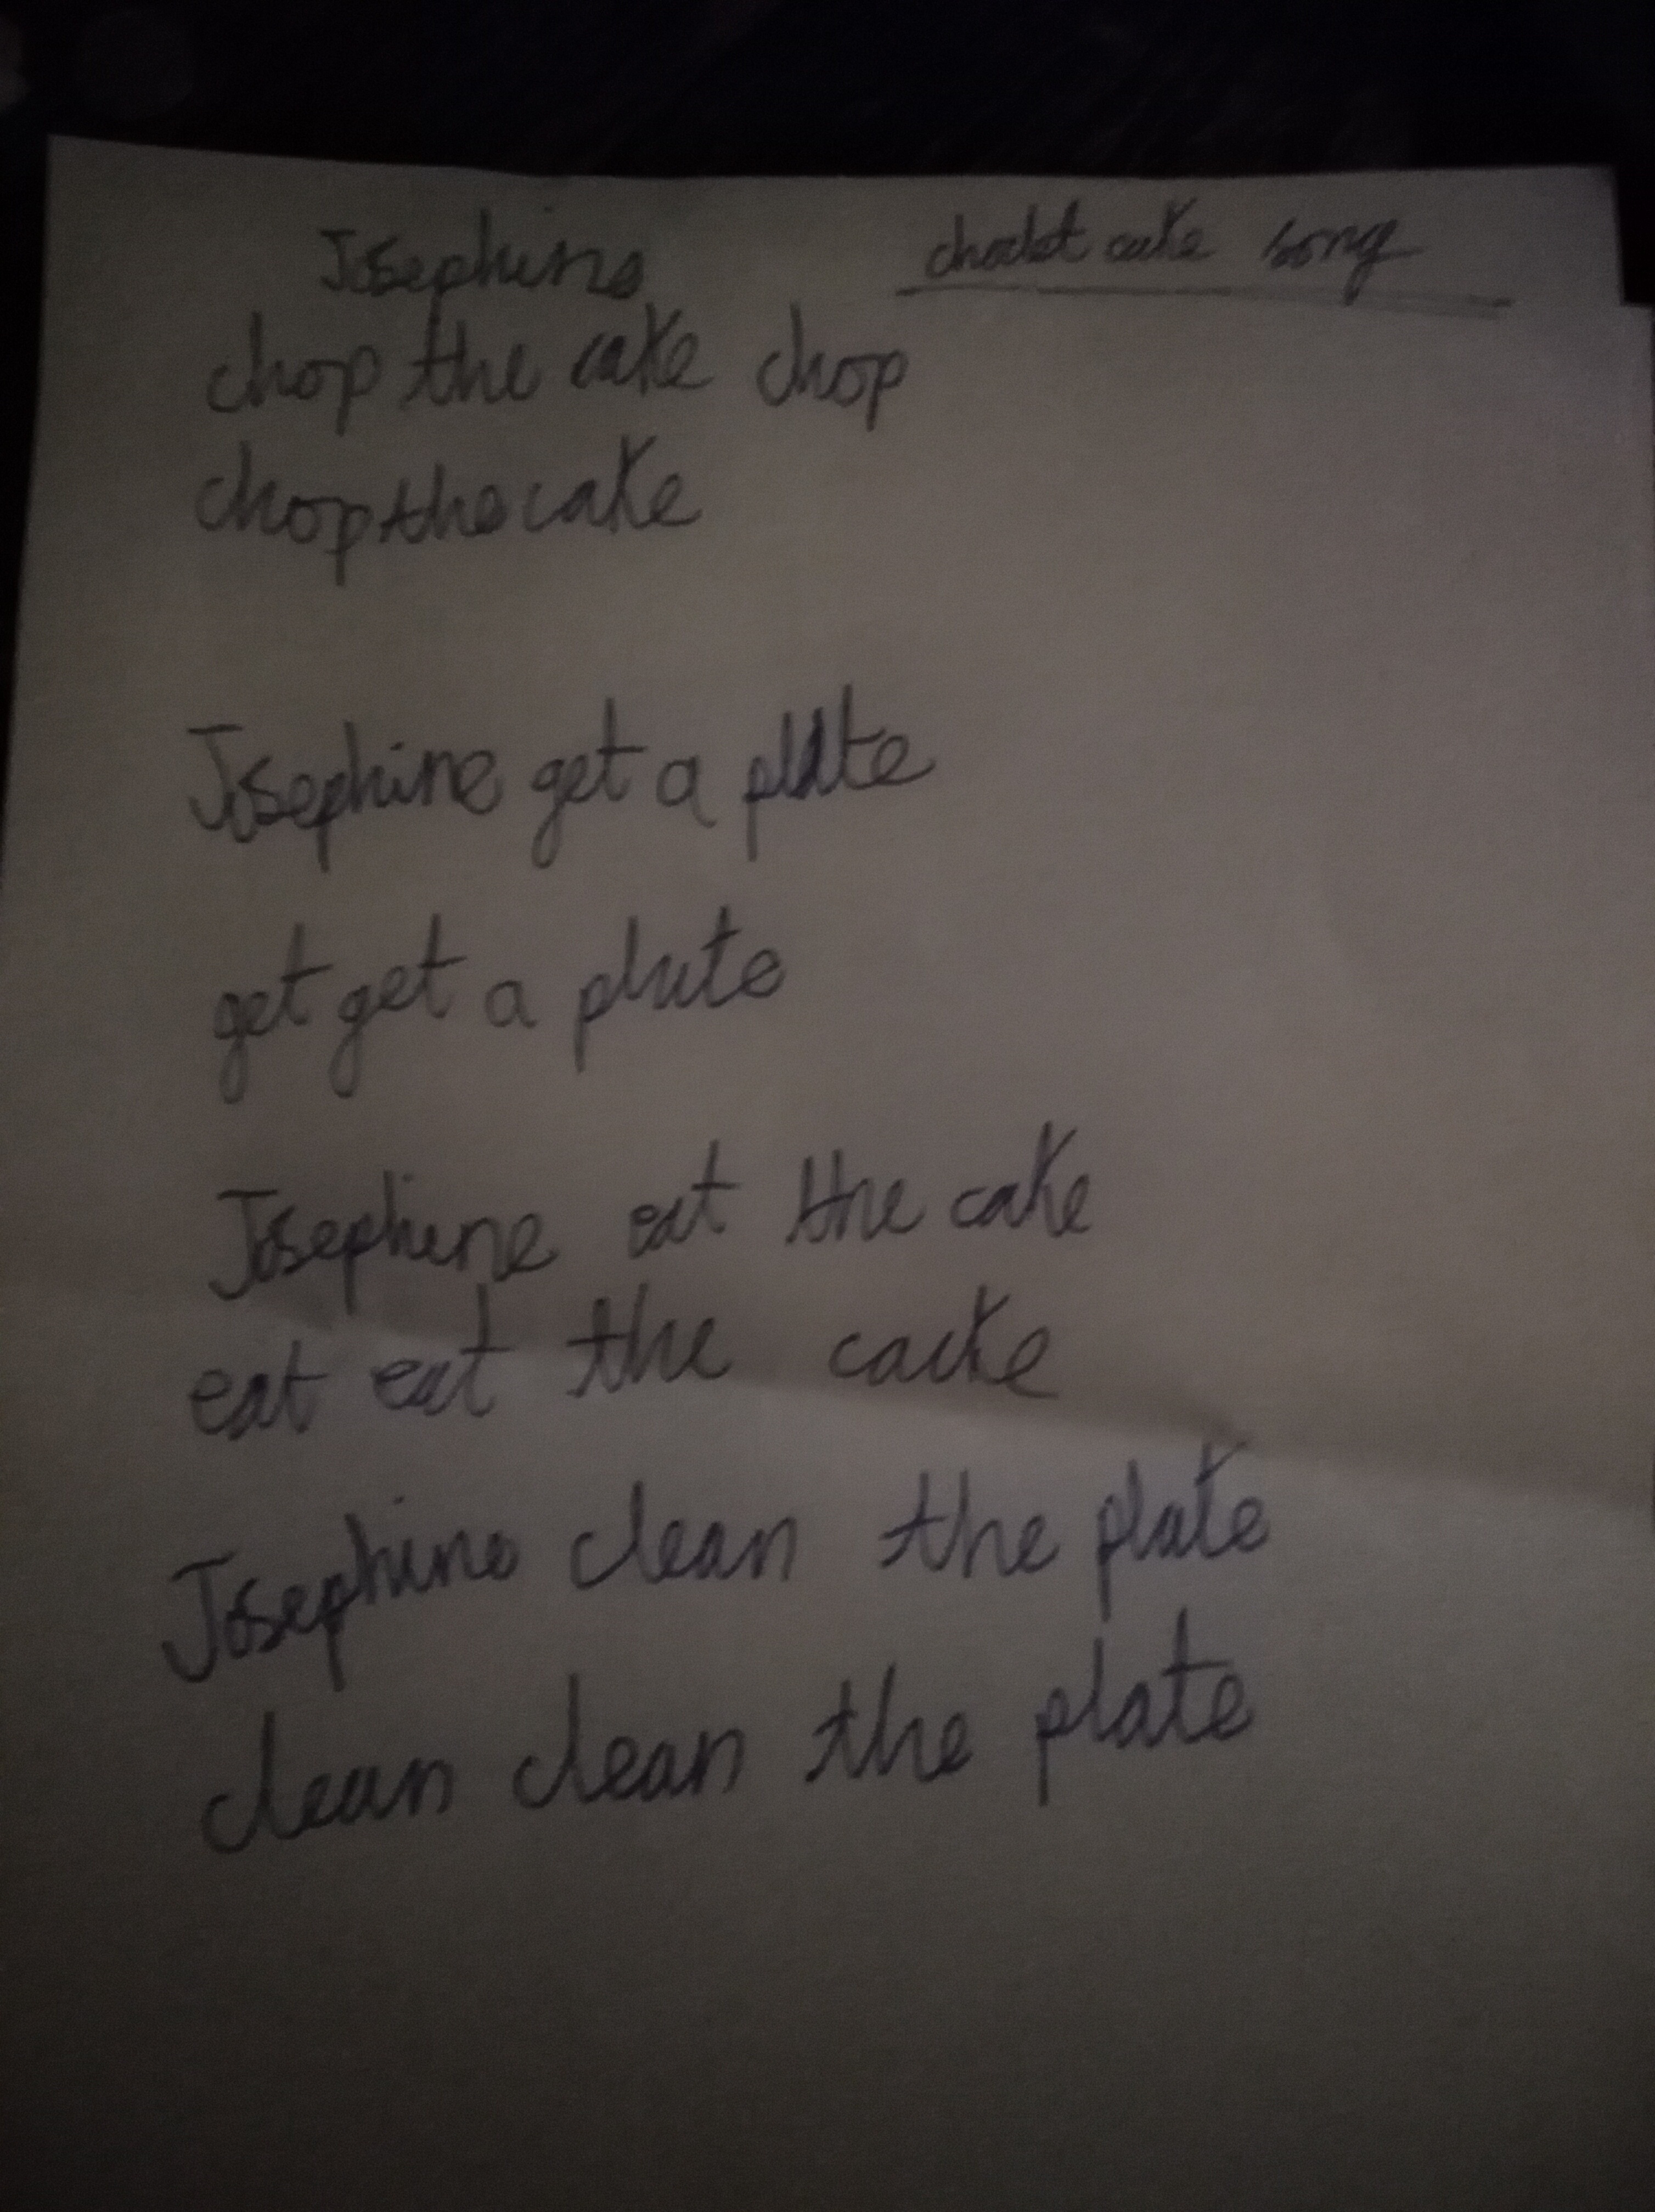 Josephine
choclet cake song
chop the cake chop
chop the cake
Josephine get a plate
get get a plate
Josephine eat the cake
eat eat the cacke
Josephine clean the plate
clean clean the plate